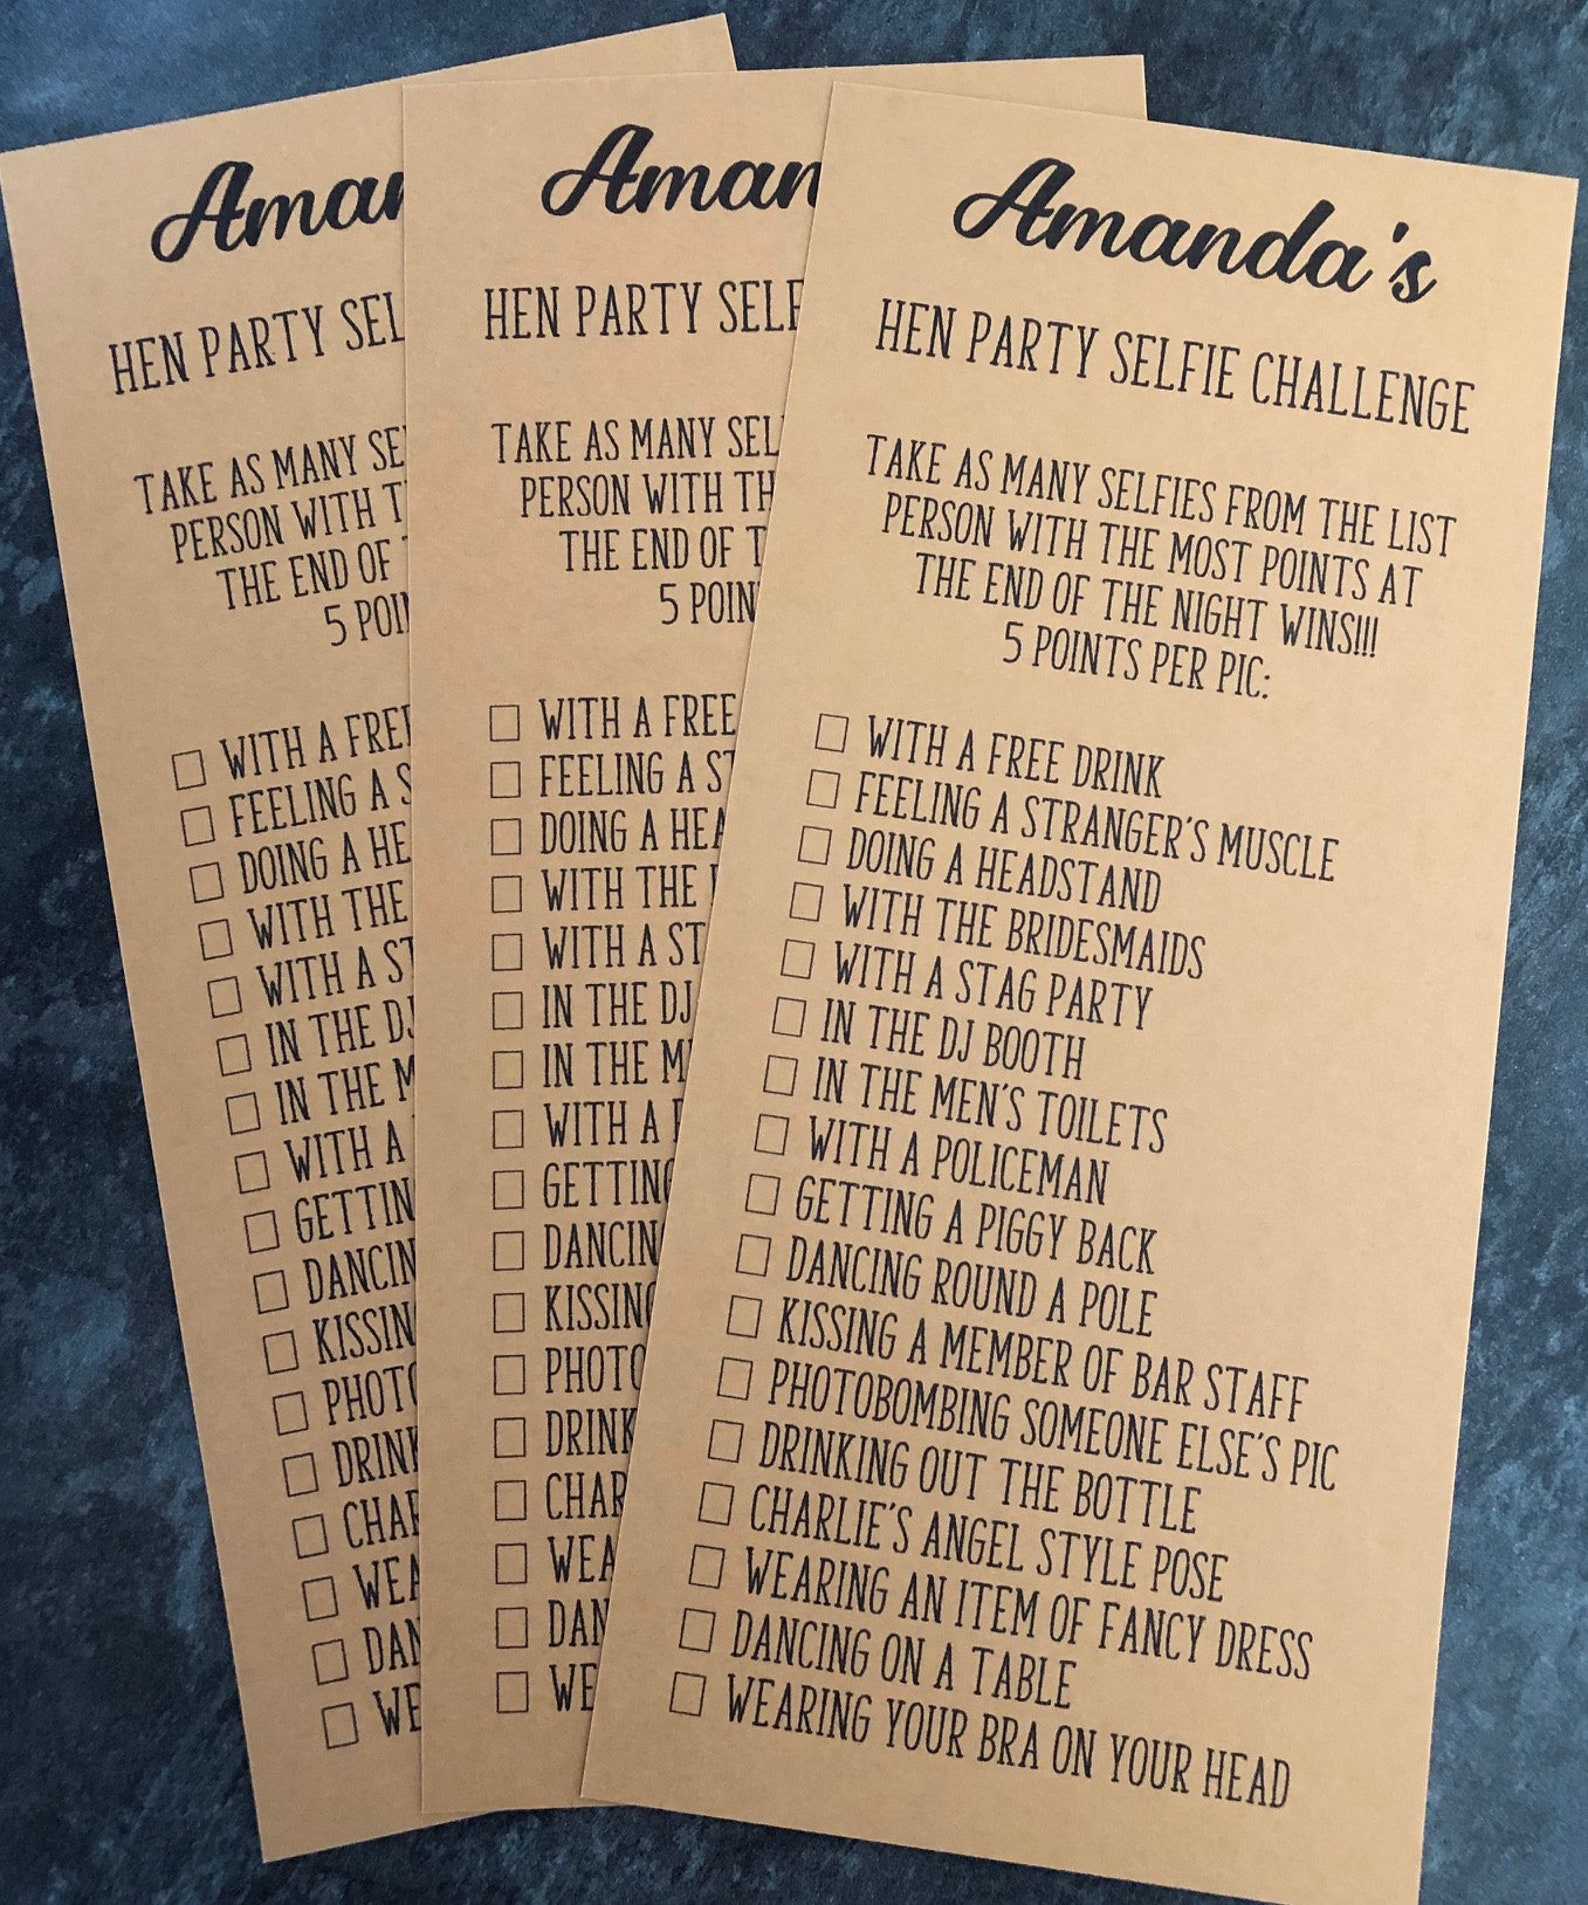 Aman
HEN PARTY SEL
TAKE AS MANY SE
PERSON WITH T
THE END OF
5 POIN
WITH A FREE
FEELING A S
DOING A HE
WITH THE
WITH A ST
IN THE DJ
IN THE M
WITH A
GETTIN
DANCIN
KISSIN
PHOTO
DRINK
CHAR
WEA
DAN
WE
Aman
HEN PARTY SELF
TAKE AS MANY SEL
PERSON WITH TH
THE END OF T
5 POIN
WITH A FREE
FEELING A ST
DOING A HEA
WITH THE
WITH A ST
IN THE DJ
IN THE M
WITH A
GETTING
DANCING
KISSING
PHOTO
DRINK
CHAR
WEA
DAN
WE
Amanda's
HEN PARTY SELFIE CHALLENGE
TAKE AS MANY SELFIES FROM THE LIST
PERSON WITH THE MOST POINTS AT
THE END OF THE NIGHT WINS!!!
5 POINTS PER PIC:
WITH A FREE DRINK
FEELING A STRANGER'S MUSCLE
DOING A HEADSTAND
WITH THE BRIDESMAIDS
WITH A STAG PARTY
IN THE DJ BOOTH
IN THE MEN'S TOILETS
WITH A POLICEMAN
GETTING A PIGGY BACK
DANCING ROUND A POLE
KISSING A MEMBER OF BAR STAFF
PHOTOBOMBING SOMEONE ELSE'S PIC
DRINKING OUT THE BOTTLE
CHARLIE'S ANGEL STYLE POSE
WEARING AN ITEM OF FANCY DRESS
DANCING ON A TABLE
WEARING YOUR BRA ON YOUR HEAD